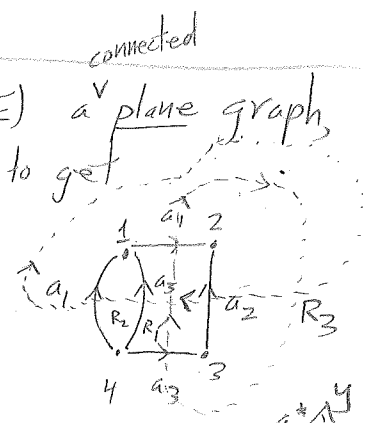 connected
E) a ∨ plane graph,
to get
a4
1 2
a1 a5 a2
R2 R1 R3
4 a3 3
a* y